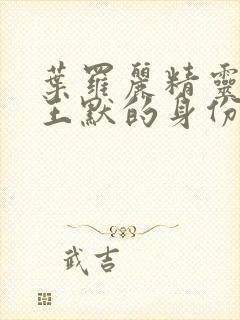 葉羅麗精靈
王默的身份
武吉